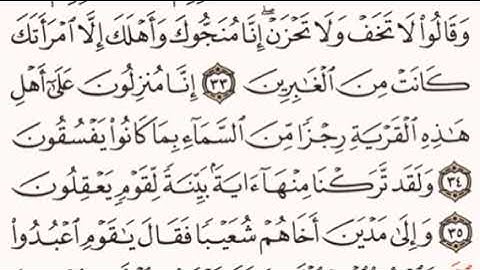 وَقَالُوا۟ لَا تَخَفْ وَلَا تَحْزَنْ ۖ إِنَّا مُنَجُّوكَ وَأَهْلَكَ إِلَّا ٱمْرَأَتَكَ
كَانَتْ مِنَ ٱلْغَـٰبِرِينَ ٣٣ إِنَّا مُنزِلُونَ عَلَىٰٓ أَهْلِ
هَـٰذِهِ ٱلْقَرْيَةِ رِجْزًا مِّنَ ٱلسَّمَآءِ بِمَا كَانُوا۟ يَفْسُقُونَ
٣٤ وَلَقَد تَّرَكْنَا مِنْهَآ ءَايَةًۢ بَيِّنَةً لِّقَوْمٍ يَعْقِلُونَ
٣٥ وَإِلَىٰ مَدْيَنَ أَخَاهُمْ شُعَيْبًا فَقَالَ يَـٰقَوْمِ ٱعْبُدُوا۟